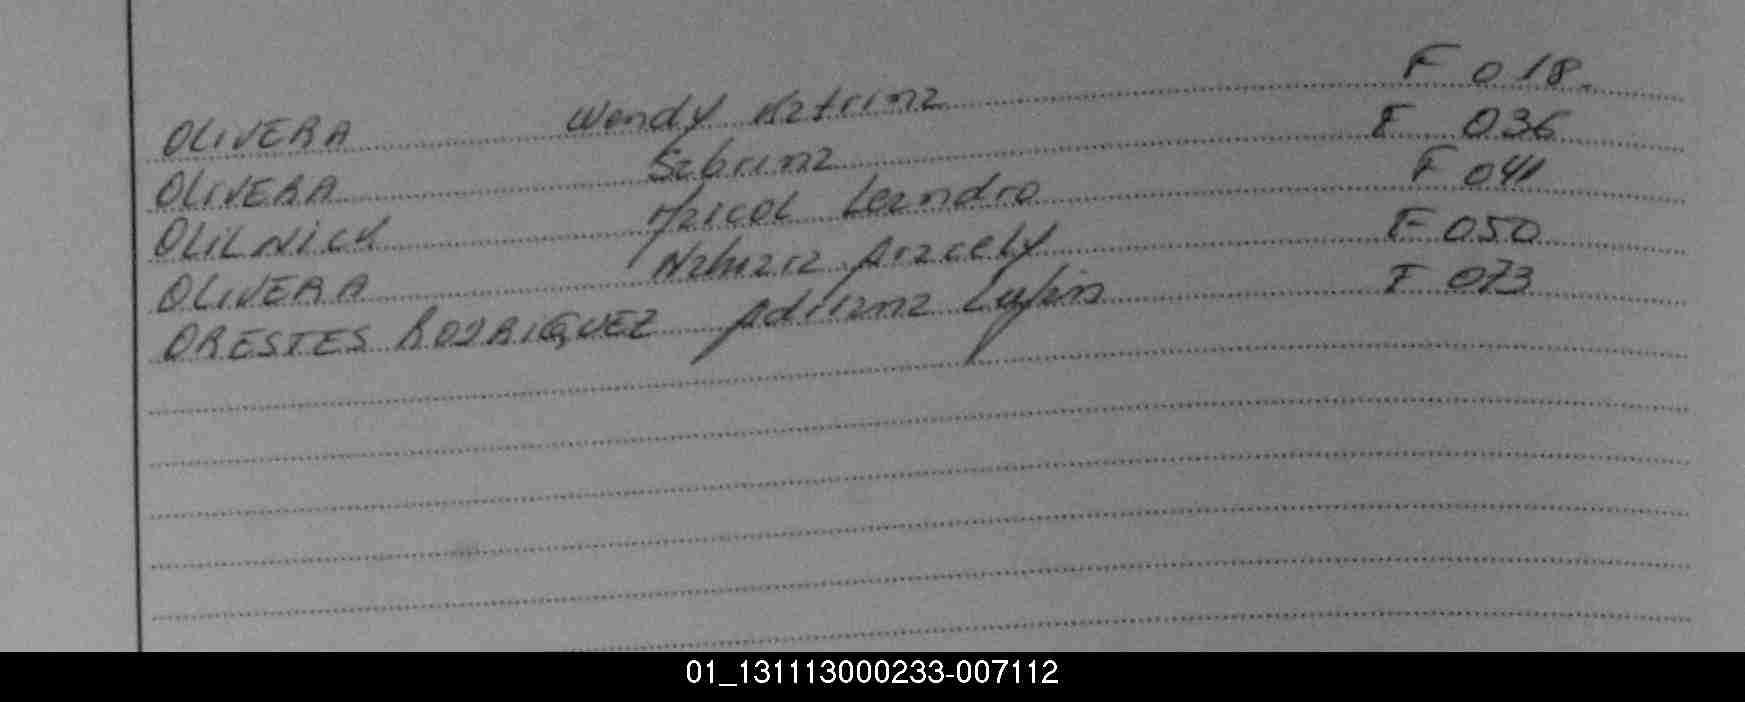 OLIVERA Wendy Katrina F 018.
OLIVERA Sabrina F 036
OLILNICK Maicol Leandro F 041
OLIVERA Nahiara Aracely F 050
ORESTES RODRIGUEZ Adriana Lujan F 073
01_131113000233-007112